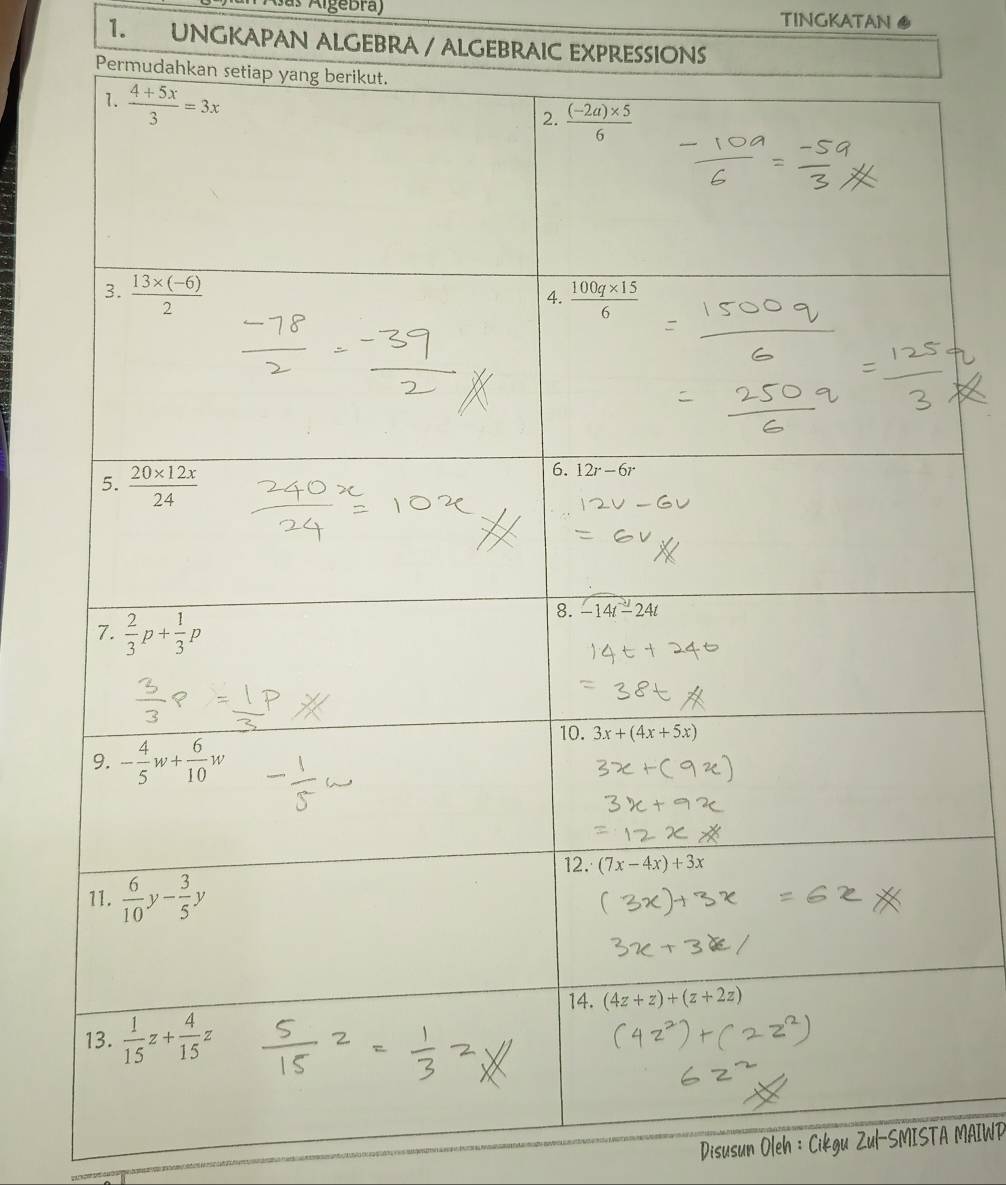 Asas Algebra)
TINGKATAN
1. UNGKAPAN ALGEBRA / ALGEBRAIC EXPRESSIONS
Permudahkan setiap yang berikut.
1. (4 + 5x)/3 = 3x
2. ((-2a) × 5)/6
-10a/6 = -5a/3
3. (13 × (-6))/2
-78/2 = -39/2
4. (100q × 15)/6
= 1500q/6
= 250q/6 = 125q/3
5. (20 × 12x)/24
240x/24 = 10x
6. 12r - 6r
12r - 6r
= 6r
7. 2/3 p + 1/3 p
3/3 p = 1/3 p
8. -14t - 24t
14t + 24t
= 38t
9. -4/5 w + 6/10 w
-1/5 w
10. 3x + (4x + 5x)
3x + (9x)
3x + 9x
= 12x
11. 6/10 y - 3/5 y
12. (7x - 4x) + 3x
(3x) + 3x = 6x
3x + 3x
13. 1/15 z + 4/15 z
5/15 z = 1/3 z
14. (4z + z) + (z + 2z)
(4z²) + (2z²)
6z²
Disusun Oleh : Cikgu Zul-SMISTA MAIWP